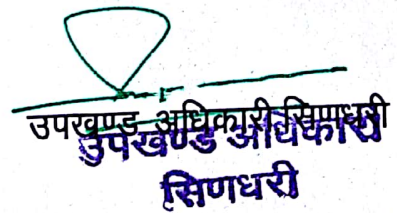 उपखण्ड अधिकारी सिणधरी
उपखण्ड अधिकारी
सिणधरी